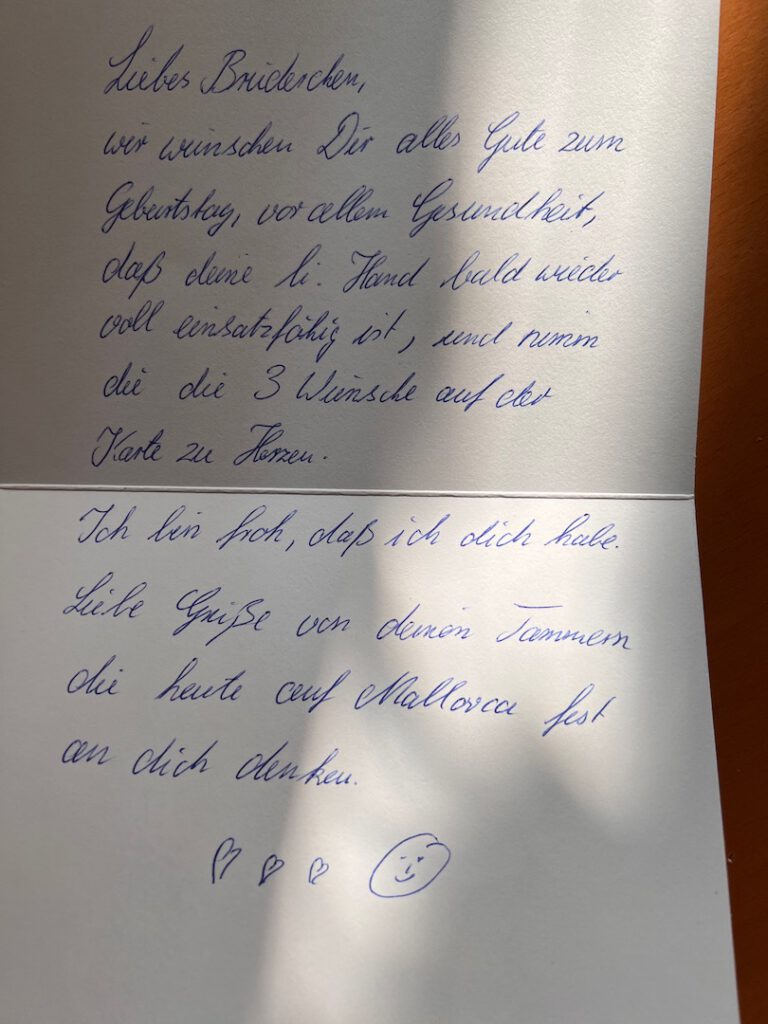 Liebes Brüderchen,
wir wünschen Dir alles Gute zum
Geburtstag, vor allem Gesundheit,
daß deine li. Hand bald wieder
voll einsatzfähig ist, und nimm
die die 3 Wünsche auf der
Karte zu Herzen.
Ich bin froh, daß ich dich habe.
Liebe Grüße von deinen Tammern
die heute auf Mallorca fest
an dich denken.